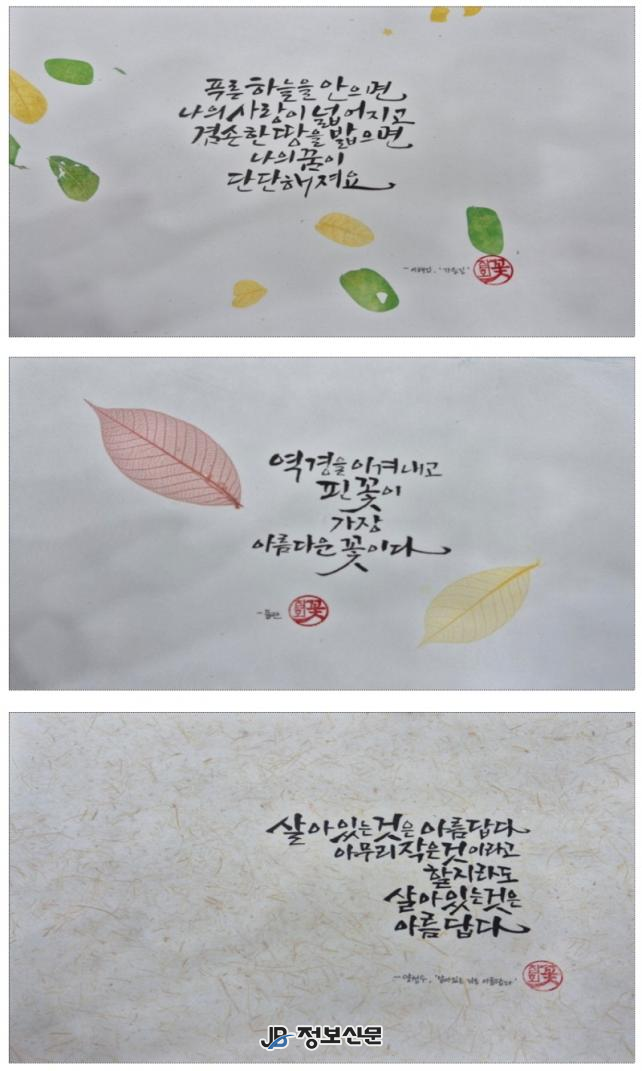 푸른 하늘을 안으면
나의 사랑이 넓어지고
겸손한 땅을 밟으면
나의 꿈이
단단해져요
- 이해인, '가을길'
꽃
역경을 이겨내고
핀 꽃이
가장
아름다운 꽃이다
꽃
살아있는것은 아름답다
아무리 작은것이라고
할지라도
살아있는것은
아름답다
- 양성우, '살아있는 것은 아름답다'
꽃
JB 정보신문